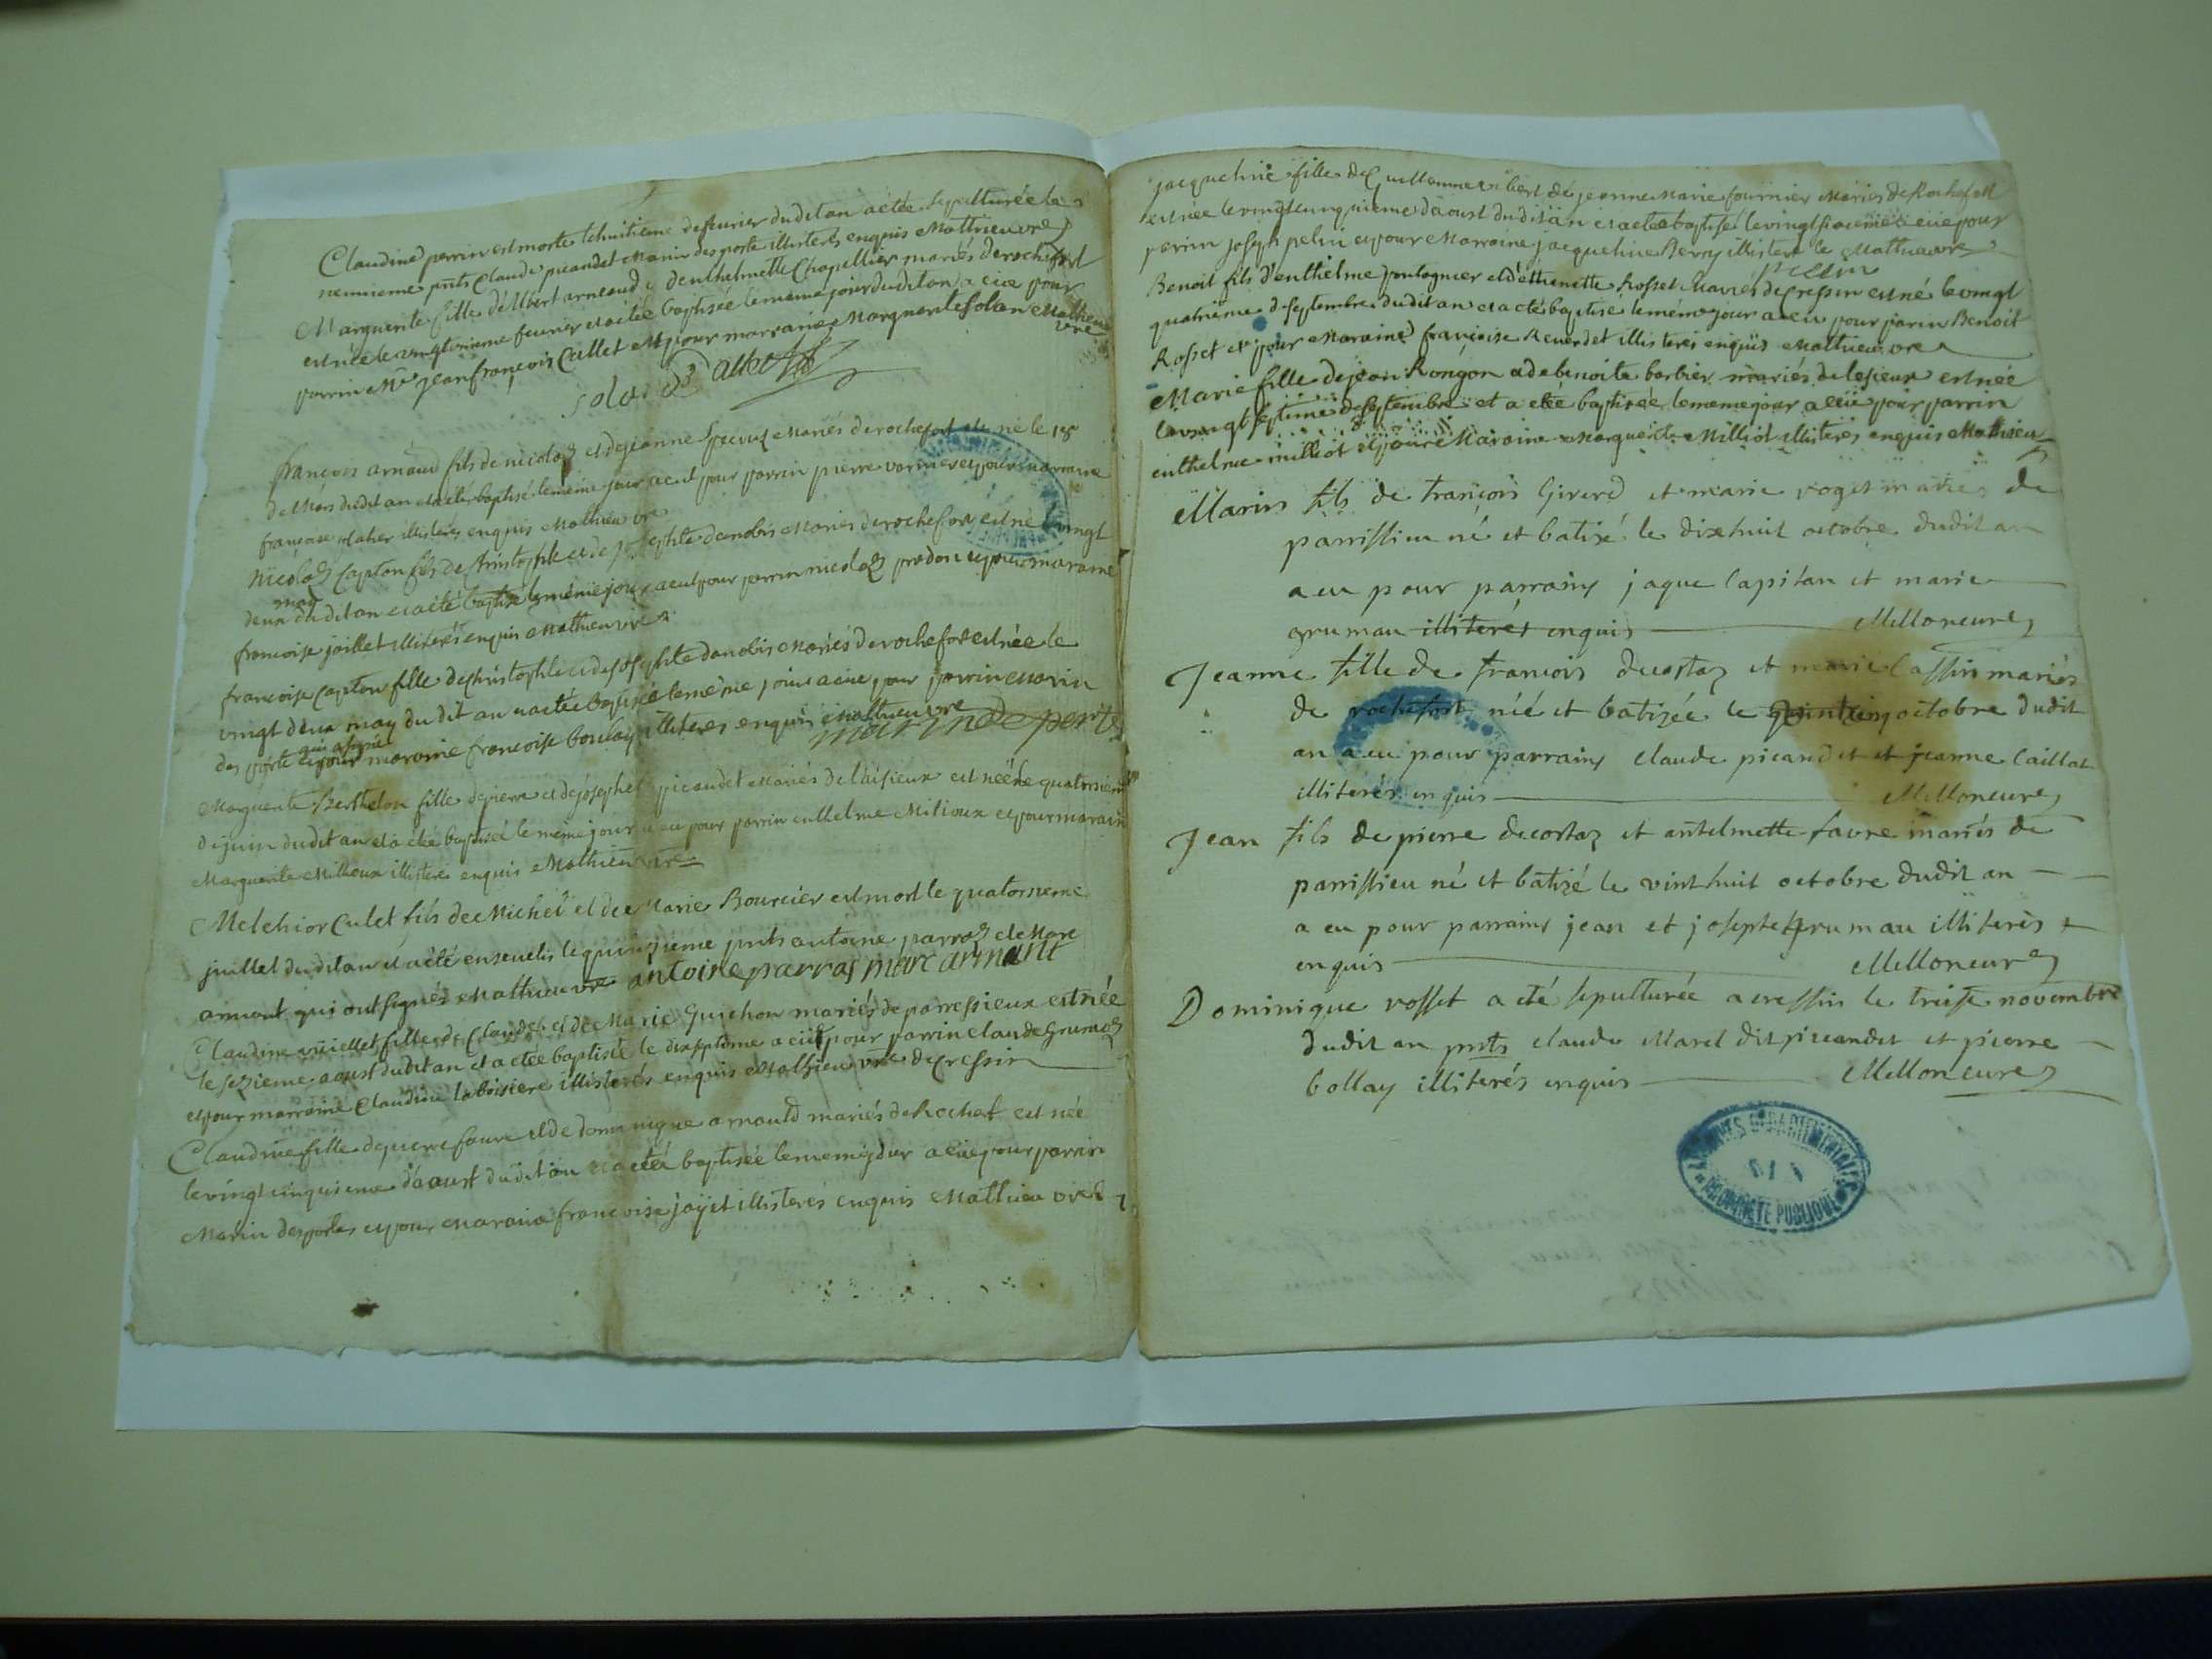 Claudine perrin est morte le huitieme de feurier dudit an a etée sepulturée le
neuuieme pnts Claude picandet Marin des porte illisterés enquis Mathieu vre
Marguerite fille d'Albert arnaud & d'enthelmette Chapellier mariés de rochefort
est née le vingt unieme feurier et a etée baptisée le meme jour dudit an a eüe pour
parrin Mre jean françois Cullet et pour marraine Marguerite solan Mathieu
vre
francois arnaud fils de nicolaz et de jeanne mariés de rochefort est né le 18e
de Mars dudit an et a eté baptisé le meme jour a eut pour parrin pierre et pour marraine
françoise illisterés enquis Mathieu vre
Nicolaz Capton fils de Christophle et de josephte danobis Mariés de rochefort est né le vingt
may
deux dudit an et a eté baptisé le même jour a eut pour parrin nicolaz prodon et pour maraine
francoise jaillet illisterés enquis Mathieu vre
francoise Capton fille de Christophle et de josephte danobis Mariés de rochefort est née le
vingt deux may du dit an et a etée baptisée le même jour a eüe pour parrin Marin
des porte qui a signé et pour maroine francoise boulay illisteres enquis Mathieu vre
marin deporte
Marguerite Berthelon fille de pierre et de josephte picaudet Mariés de laisieux est née le quatorsieme
de juin dudit an et a eté baptisée le meme jour a eu pour parrin enthelme Milioux et pour marain
Marguerite Millioux illisteres enquis Mathieu vre
Melchior Culet fils de Michel et de Marie Bourcier est mort le quatorsieme
juillet dudit an et a eté enseuelis le quinzieme pnts antoine parraz et Marc
armant qui ont signés Mathieu vre antoine parras marc armant
Claudine fille de Claude et de Marie Guichon mariés de parressieux est née
le sezieme aoust dudit an et a etée baptisée le dixseptiéme a eüe pour parrin claude Grumaz
et pour marraine Claudine laboisiere illisterés enquis Mathieu vre de Cressin
Claudine fille de pierre faure et de dominique arnauld mariés de Rochef est née
le vingt cinquieme d'aoust dudit an et a eté baptisée le meme jour a eüe pour parrin
Marin desportes et pour Maraine francoise jayet illisterés enquis Mathieu vre
jacqueline fille de Guillaume et de jeanne Marie fournier Mariés de Rochefort
est née le vingt cinquieme d'aoust dudit an et a etée baptisé le vingt sixieme a eüe pour
perrin joseph pelin et pour Marraine jacqueline Berry illistere le Mathieu vre
pellin
Benoit fils d'enthelme pontagnier et d'éthienette Rosset Mariés de Cressin est né le vingt
quatrieme de septembre dudit an et a eté baptisé le méme jour a eu pour parin Benoit
Rosset et pour Maraine françoise Reuerdet illisterés enquis Mathieu vre
Marie fille de jean Rongon et de benoite barbier mariés de lesieux est née
le vingt septieme de septembre et a eté baptisée le meme jour a eüe pour parrin
enthelme milliot et pour Maraine Marguerite Milliot illisterés enquis Mathieu
Marin fils de françois Girerd et marie roget mariés de
parrissieu né et batizé le dix huit octobre dudit an
a eu pour parrains jaque Capitan et marie
gruman illiterés enquis Melloncure
Jeanne fille de francois decostaz et marie Cassin mariés
de rochefort née et batizée le octobre dudit
an a eu pour parrains claude picandet et jeanne Caillat
illiterés enquis Melloncure
Jean fils de pierre decostaz et antelmette favre mariés de
parrissieu né et batizé le vint huit octobre dudit an
a eu pour parrains jean et josepte gruman illiterés
enquis Melloncure
Dominique rosset a eté sepulturée a cressin le treise novembre
dudit an pnts claude Marel dit picandet et pierre
bollay illiterés enquis Melloncure
ARCHIVES DEPARTEMENTALES
PROPRIETE PUBLIQUE